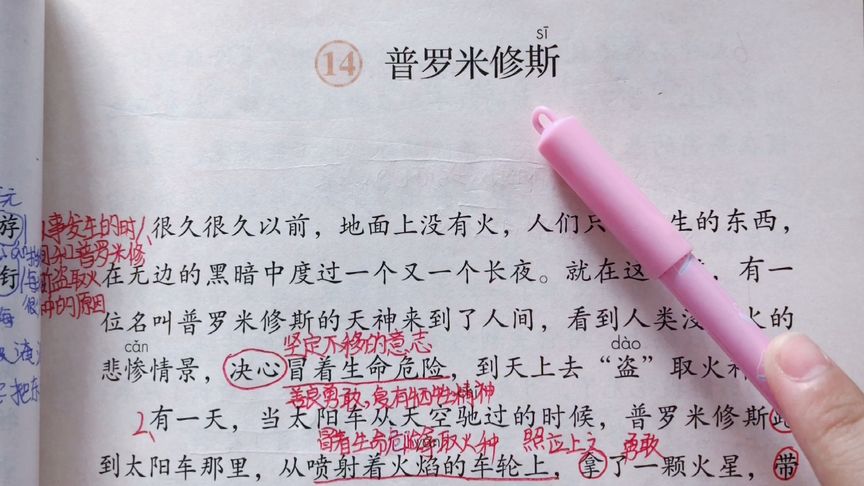 sī
14 普罗米修斯
很久很久以前，地面上没有火，人们只 生的东西，
在无边的黑暗中度过一个又一个长夜。就在这 ，有一
位名叫普罗米修斯的天神来到了人间，看到人类没 火的
坚定不移的意志
cǎn dào
悲惨情景，决心冒着生命危险，到天上去“盗”取火
善良勇敢，富有牺牲精神
2、有一天，当太阳车从天空驰过的时候，普罗米修斯
冒着生命危险 取火种 照应上文 勇敢
到太阳车那里，从喷射着火焰的车轮上，拿了一颗火星，带
1、事发生的时
间和普罗米修
盗取火
的原因
游
钉
海
淹
把东